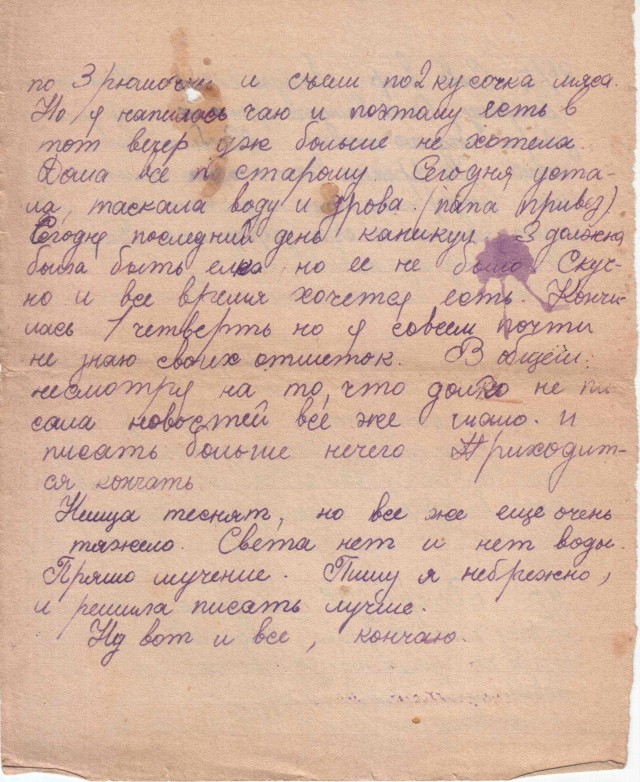 по 3 рюмочки и съели по 2 кусочка мяса.
Но я напилась чаю и поэтому есть в
тот вечер уж больше не хотела.
Дома все по старому Сегодня уста-
ла, таскала воду и дрова. (папа привез)
Сегодня последний день каникул 3 должна
была быть елка но ее не было Скуч-
но и все время хочется есть. Кончи-
лась 1 четверть но я совсем почти
не знаю своих отметок. В общем
несмотря на то, что долго не пи
сала новостей всё же мало. и
писать больше нечего Приходит-
ся кончать
Немца теснят, но все же еще очень
тяжело. Света нет и нет воды.
Прямо мучение. Пишу я небрежно,
и решила писать лучше.
Ну вот и все, кончаю.